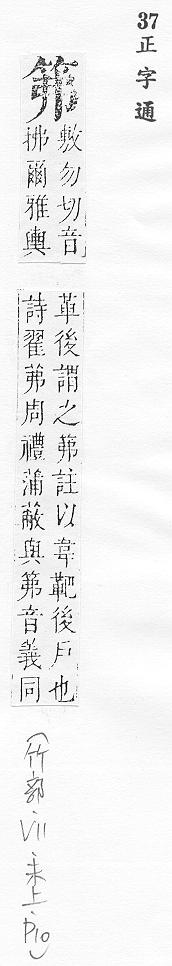 37正字通
笰
敷勿切音
拂爾雅輿
革後謂之笰註以韋靶後戶也
詩翟茀周禮蒲蔽與笰音義同
(竹部.VII.未上.P10)